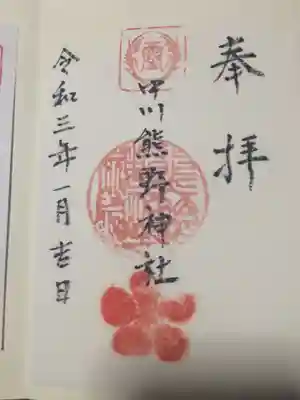 奉拝
中川熊野神社
令和三年一月吉日